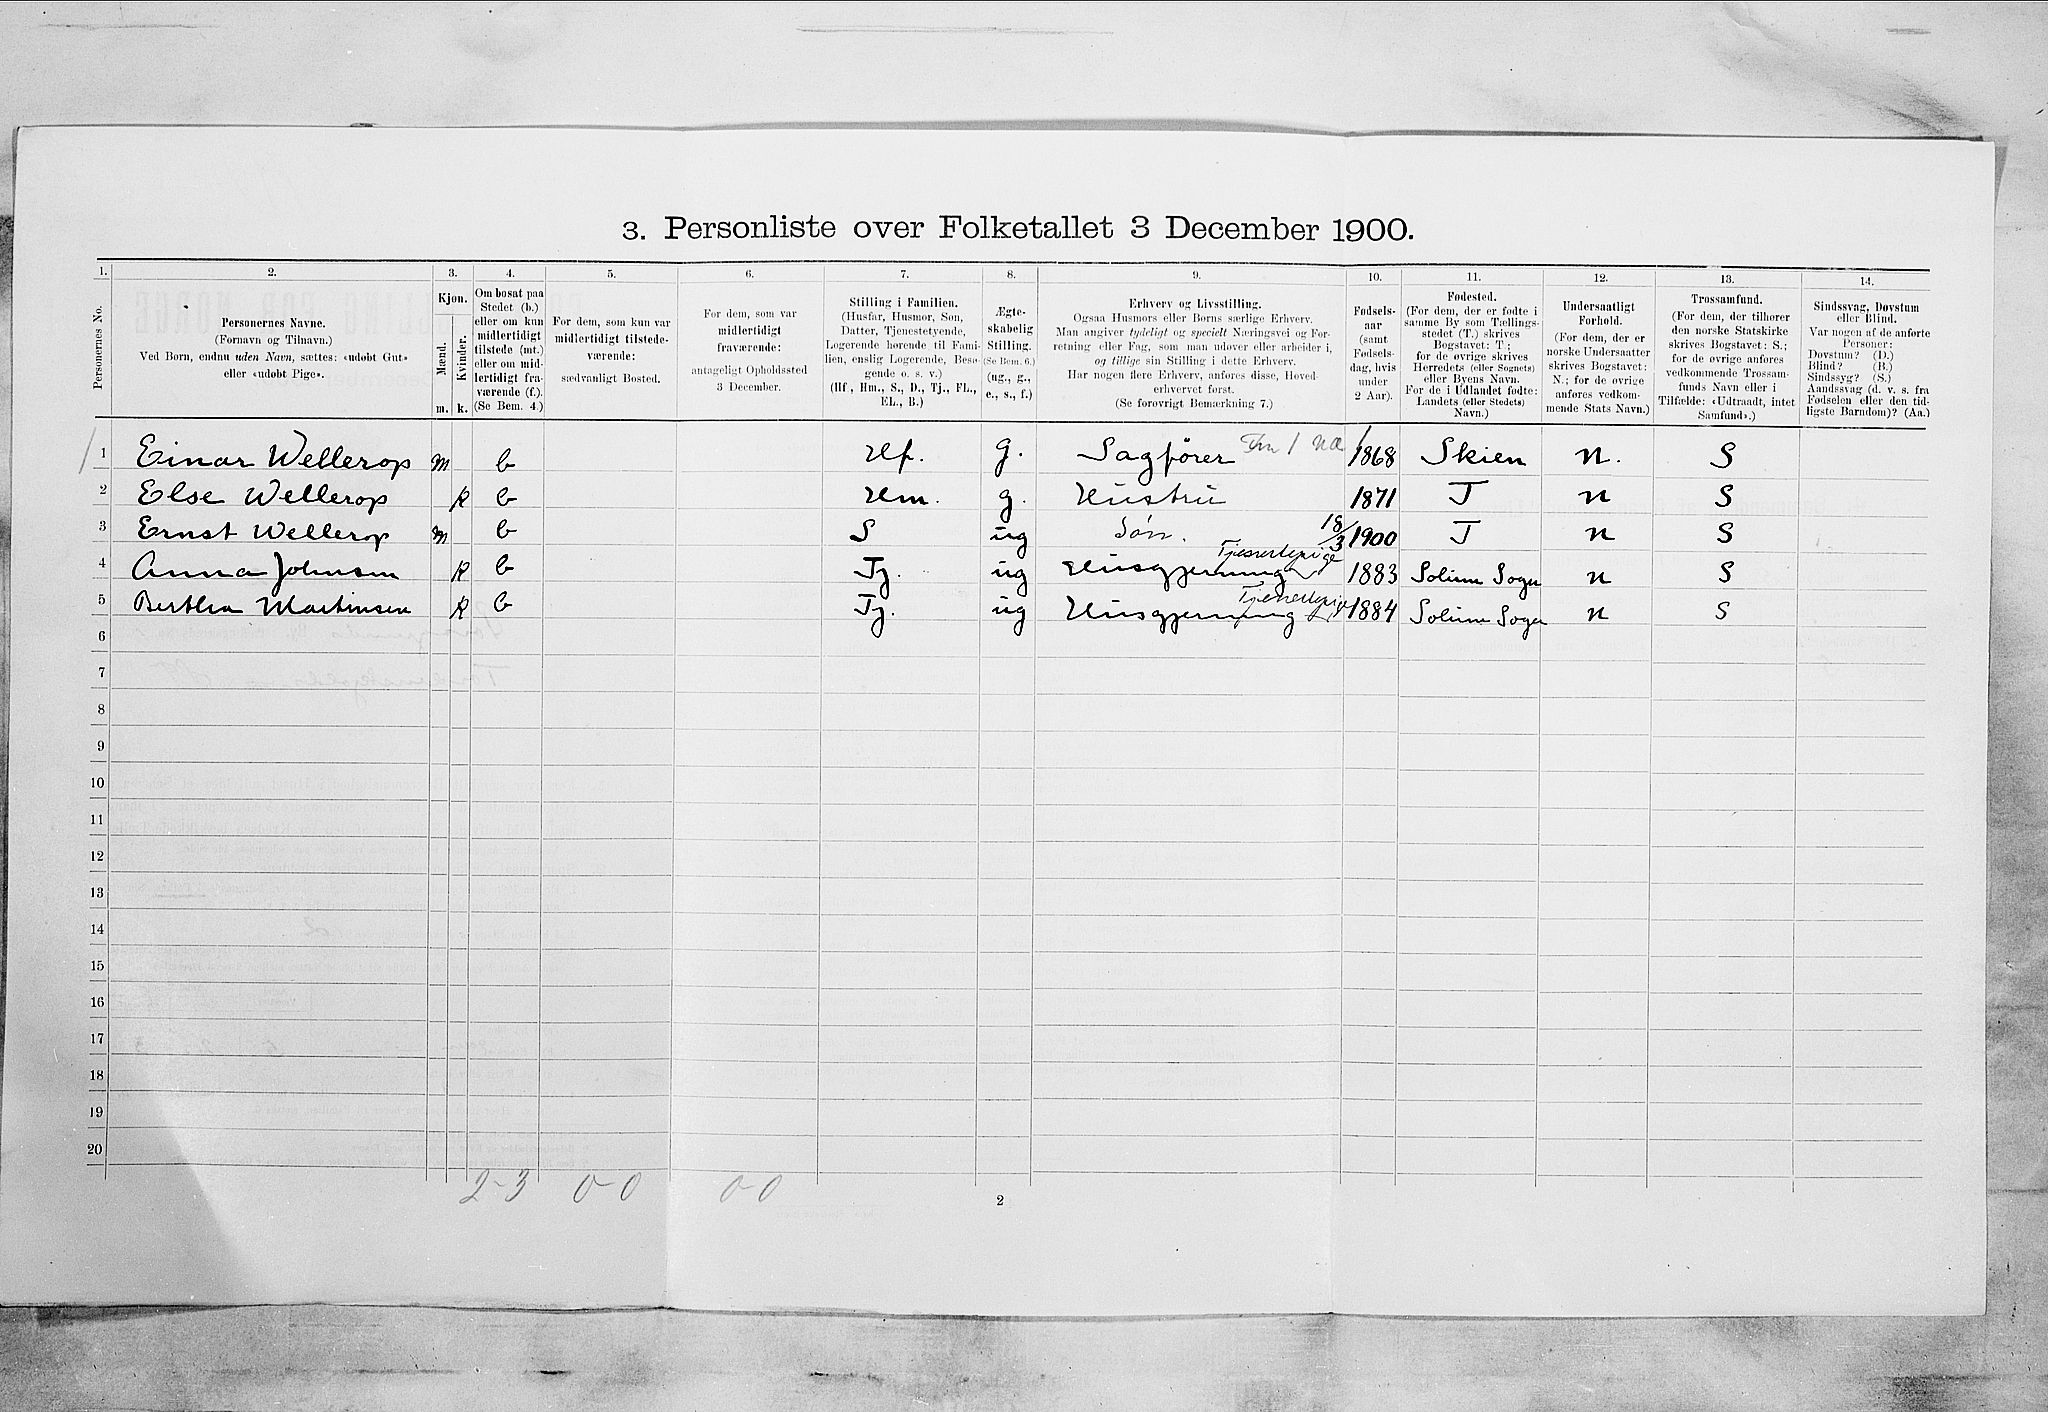 3. Personliste over Folketallet 3 December 1900.
1. 2. 3. 4. 5. 6. 7. 8. 9. 10. 11. 12. 13. 14.
Personernes No.
Personernes Navne.
(Fornavn og Tilnavn.)
Ved Børn, endnu uden Navn, sættes: «udøbt Gut»
eller «udøbt Pige».
Kjøn.
Mænd.
Kvinder.
m. k.
Om bosat paa
Stedet (b.)
eller om kun
midlertidigt
tilstede (mt.)
eller om mid-
lertidigt fra-
værende (f.).
(Se Bem. 4.)
For dem, som kun var
midlertidigt tilstede-
værende:
sædvanligt Bosted.
For dem, som var
midlertidigt
fraværende:
antageligt Opholdssted
3 December.
Stilling i Familien.
(Husfar, Husmor, Søn,
Datter, Tjenestetyende,
Logerende hørende til Fami-
lien, enslig Logerende, Besø-
gende o. s. v.)
(Hf., Hm., S., D., Tj., FL.,
EL., B.)
Ægte-
skabelig
Stilling.
(Se Bem. 6.)
(ug., g.,
e., s., f.)
Erhverv og Livsstilling.
Ogsaa Husmors eller Børns særlige Erhverv.
Man angiver tydeligt og specielt Næringsvei og For-
retning eller Fag, som man udøver eller arbeider i,
og tillige sin Stilling i dette Erhverv.
Har nogen flere Erhverv, anføres disse, Hoved-
erhvervet først.
(Se forøvrigt Bemærkning 7.)
Fødsels-
aar
(samt
Fødsels-
dag, hvis
under
2 Aar).
Fødested.
(For dem, der er fødte i
samme By som Tællings-
stedet (T.) skrives
Bogstavet: T;
for de øvrige skrives
Herredets (eller Sognets)
eller Byens Navn.
For de i Udlandet fødte:
Landets (eller Stedets)
Navn.)
Undersaatligt
Forhold.
(For dem, der er
norske Undersaatter
skrives Bogstavet:
N.; for de øvrige
anføres vedkom-
mende Stats Navn.)
Trossamfund.
(For dem, der tilhører
den norske Statskirke
skrives Bogstavet: S.;
for de øvrige anføres
vedkommende Trossam-
funds Navn eller i
Tilfælde: «Udtraadt, intet
Samfund».)
Sindssvag, Døvstum
eller Blind.
Var nogen af de anførte
Personer:
Døvstum? (D.)
Blind? (B.)
Sindssyg? (S.)
Aandssvag (d. v. s. fra
Fødselen eller den tid-
ligste Barndom)? (Aa.)
1 Einar Wellerop m b Hf. g. Sagfører 1868 Skien n. S
2 Else Wellerop k b Hm. g. Hustru 1871 T n S
3 Ernst Wellerop m b S ug Søn. 18/3 1900 T n S
4 Anna Johnsen k b Tj. ug Husgjerning Tjenestepige 1883 Solum Sogn n S
5 Bertha Martinsen k b Tj. ug Husgjerning Tjenestepige 1884 Solum Sogn n S
6
7
8
9
10
11
12
13
14
15
16
17
18
19
20
2-3 0-0 0-0
2